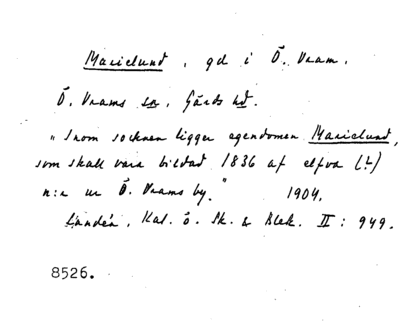 Marielund, gd i Ö. Vram.
Ö. Vrams sn, Gärds hd.
"Inom socknen ligger egendomen Marielund,
som skall vara bildad 1836 af elfva (?)
n:r ur Ö. Vrams by." 1904.
Lindén, Kal. ö. Sk. & Blek. II: 949.
8526.